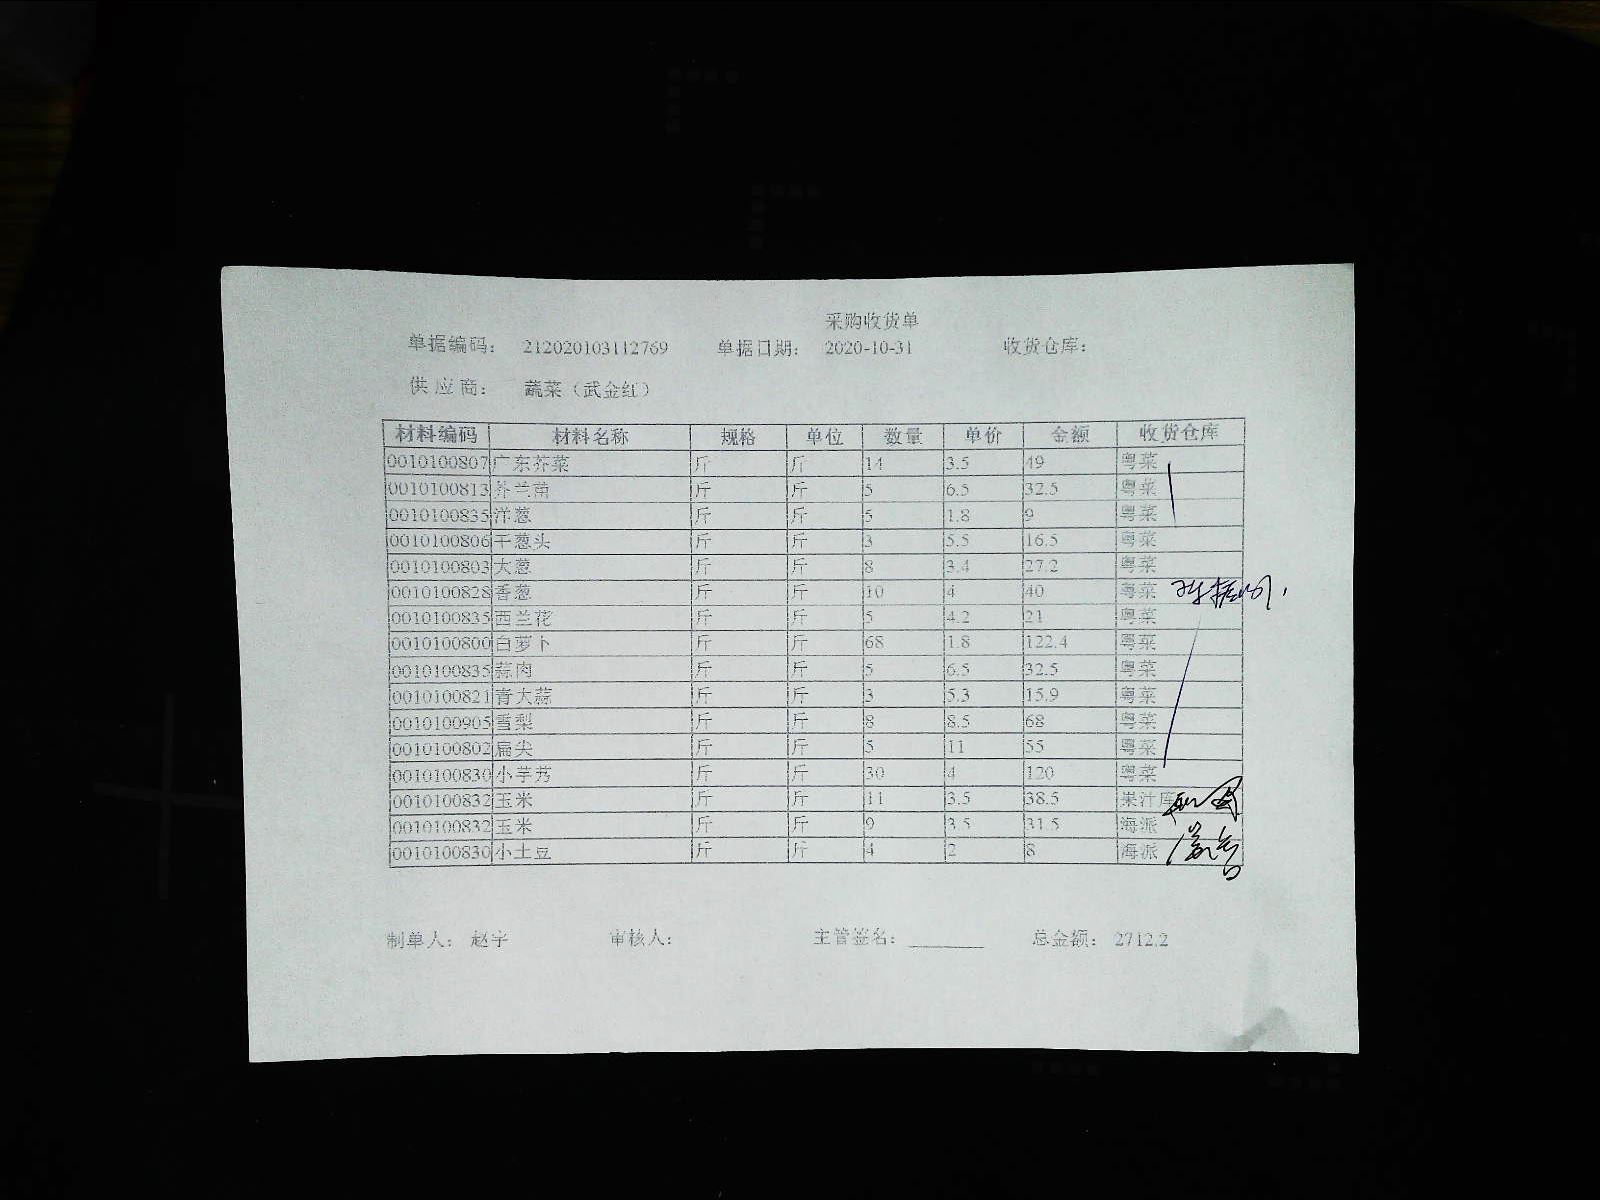 采购收货单
单据编码： 212020103112769 单据日期： 2020-10-31 收货仓库：
供 应 商： 蔬菜（武金红）
材料编码 材料名称 规格 单位 数量 单价 金额 收货仓库
0010100807 广东芥菜 斤 斤 14 3.5 49 粤菜
0010100813 芥兰苗 斤 斤 5 6.5 32.5 粤菜
0010100835 洋葱 斤 斤 5 1.8 9 粤菜
0010100806 干葱头 斤 斤 3 5.5 16.5 粤菜
0010100803 大葱 斤 斤 8 3.4 27.2 粤菜
0010100828 香葱 斤 斤 10 4 40 粤菜
0010100835 西兰花 斤 斤 5 4.2 21 粤菜
0010100800 白萝卜 斤 斤 68 1.8 122.4 粤菜
0010100835 蒜肉 斤 斤 5 6.5 32.5 粤菜
0010100821 青大蒜 斤 斤 3 5.3 15.9 粤菜
0010100905 雪梨 斤 斤 8 8.5 68 粤菜
0010100802 扁尖 斤 斤 5 11 55 粤菜
0010100830 小芋艿 斤 斤 30 4 120 粤菜
0010100832 玉米 斤 斤 11 3.5 38.5 果汁库
0010100832 玉米 斤 斤 9 3.5 31.5 海派
0010100830 小土豆 斤 斤 4 2 8 海派
制单人： 赵宇 审核人： 主管签名： 总金额： 2712.2